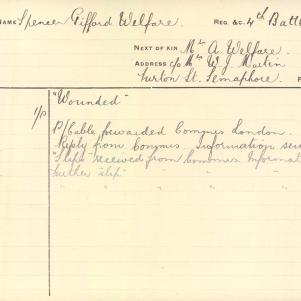 NAME Spencer Gifford Welfare. REG. &c. 4th Batt
NEXT OF KIN Mrs A. Welfare.
ADDRESS c/o Mrs W. J. Martin
Turton St. Semaphore. F
1/P "Wounded"
P/Cable forwarded Commis London.
Reply from Commis. Information sen
"Slip" received from Commis Informat
Further "slip" " " " "